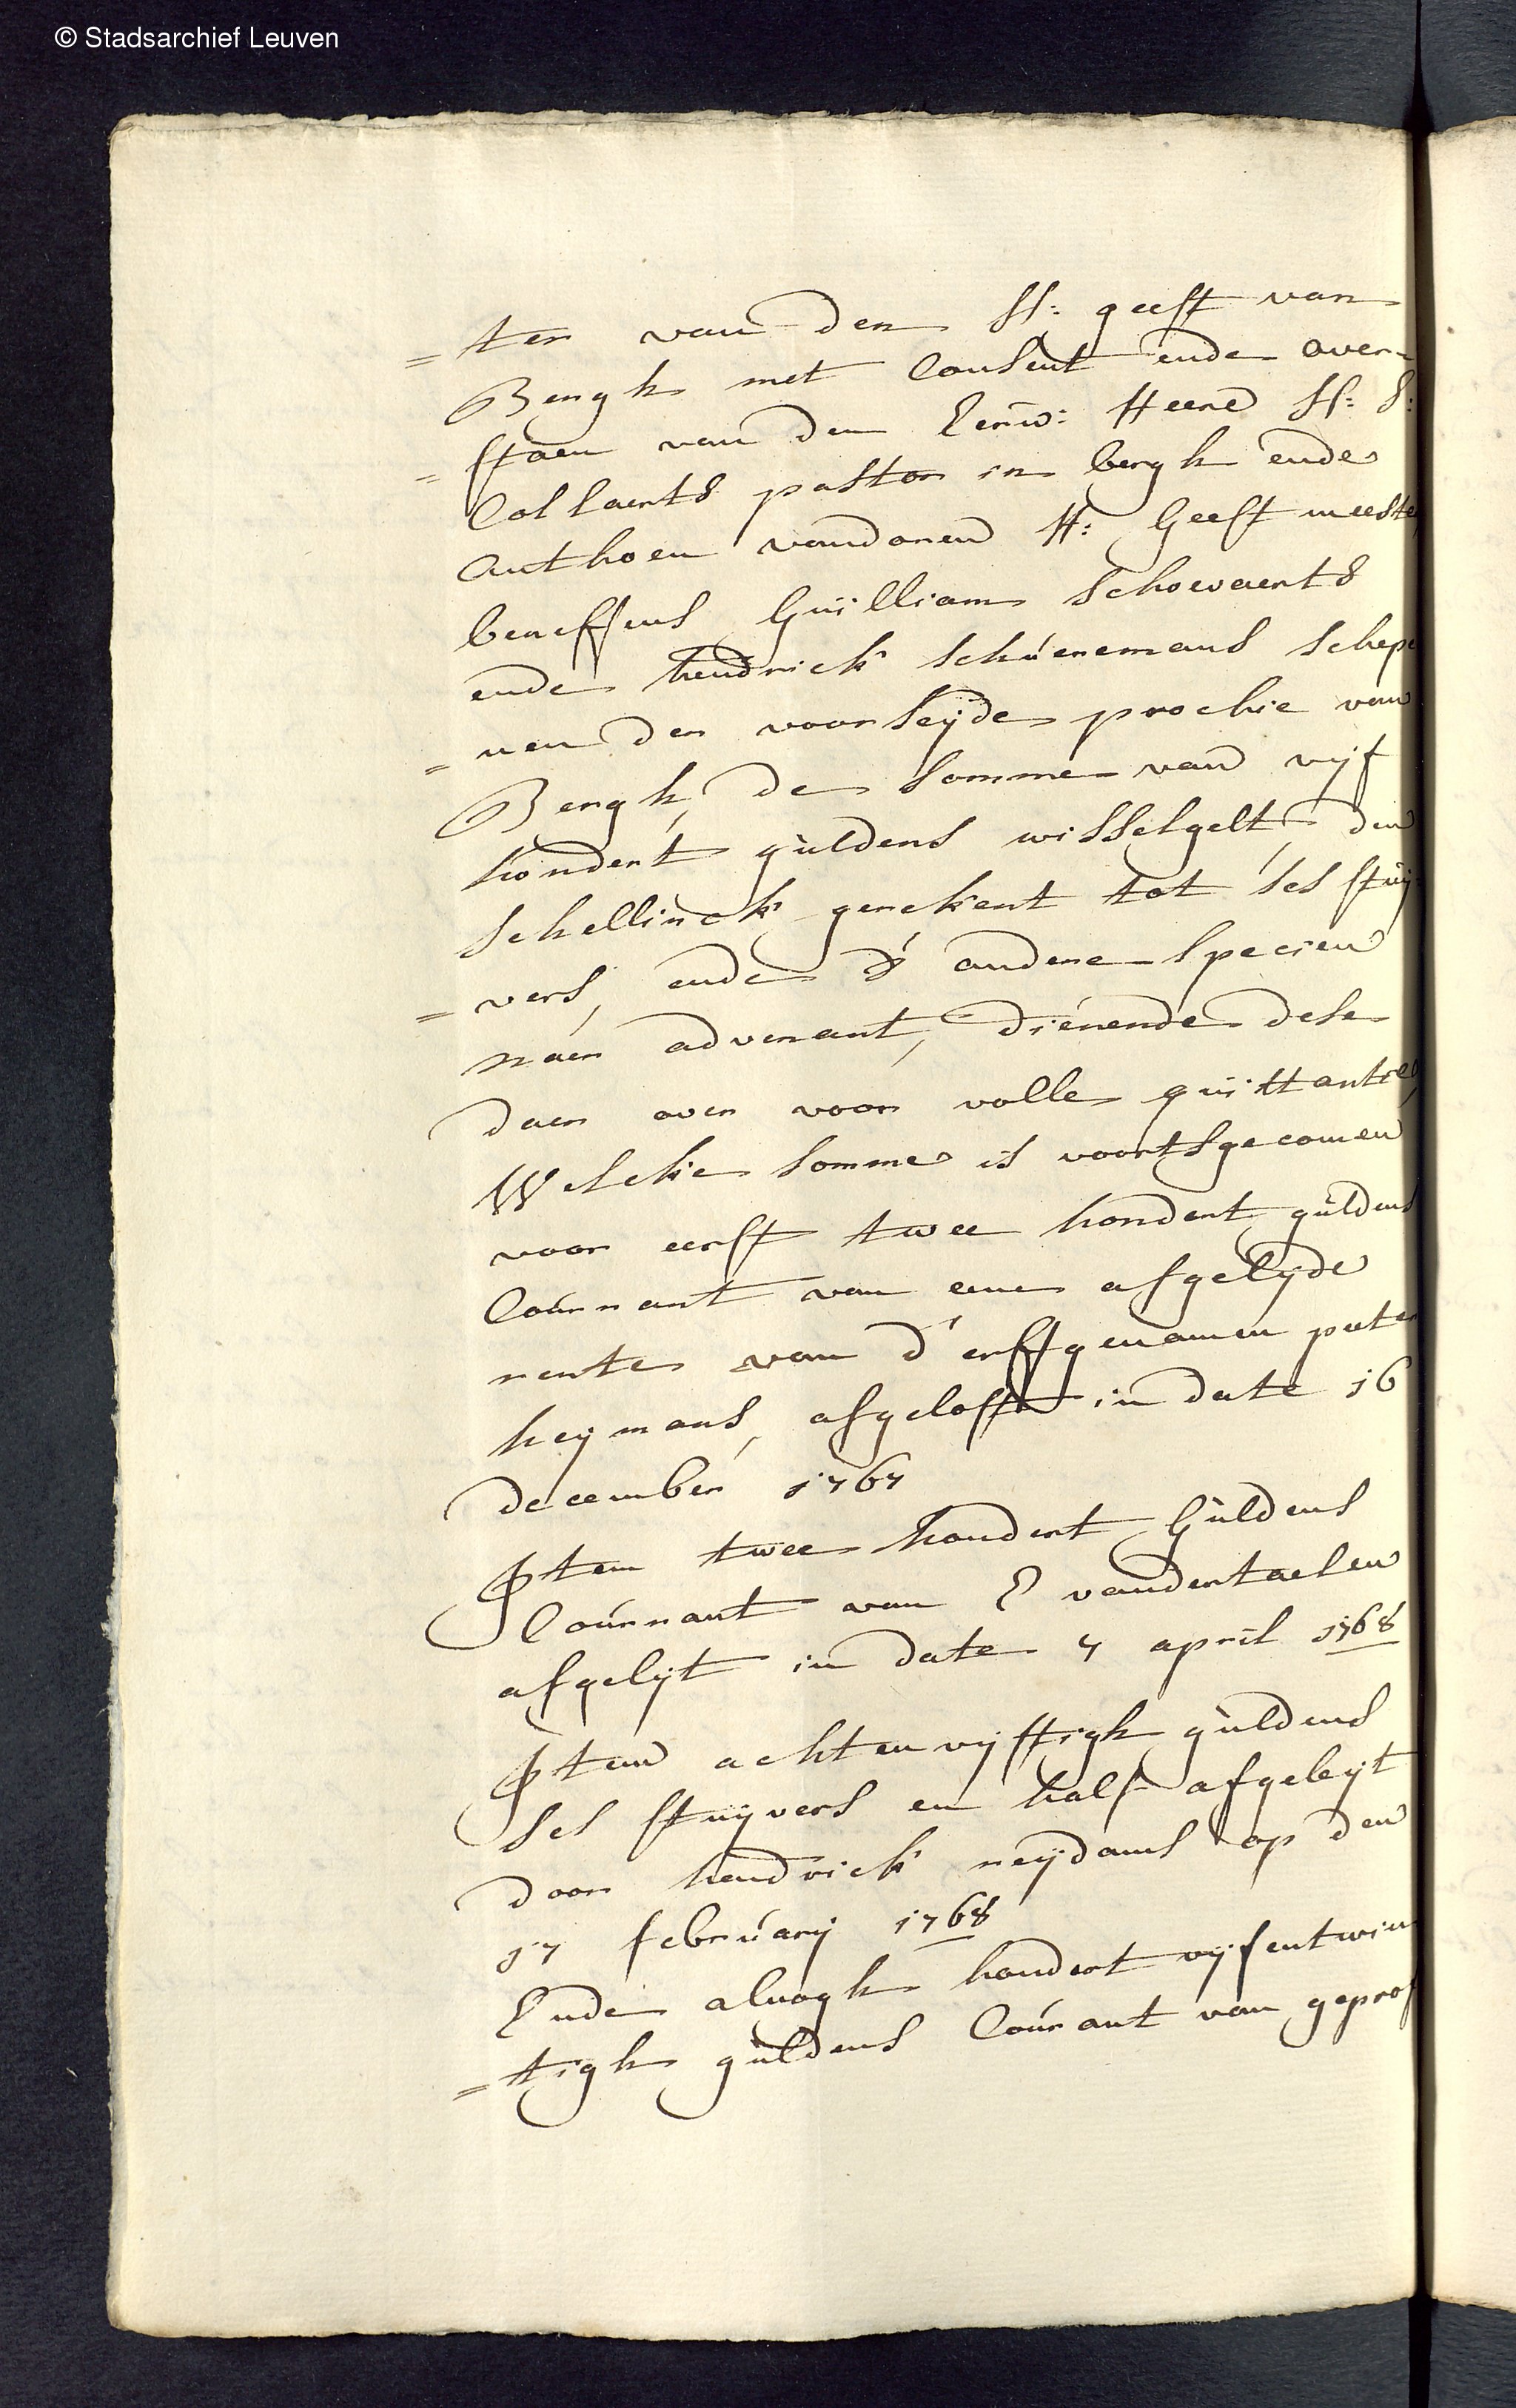 © Stadsarchief Leuven
= ter van den H: geest van
Bergh met Consent ende over=
= staen van den Eerw: Heere H: S:
Collaerts pastor in bergh ende
Anthoen vandoren H: Geest meester
beneffens Guilliam Schovaerts
ende hendrick schueremans schepe
= nen der voorseijde prochie van
Bergh, de somme van vijf
hondert guldens wisselgelt, den
schellinck gerekent tot ses stuij=
= vers, ende d'andere specien
naer advenant, dienende dese
daer over voor volle quittantie,
Welcke somme is voortsgecomen
voor eerst twee hondert guldens
Courrant van eene afgelijde
rente van d'erffgenamen peeter
heymans, afgelost in date 16
december 1767
Item twee hondert Guldens
Courrant van E vandertaelen
afgelijt in date 7 april 1768
Item achtenvijfftigh guldens
ses stuijvers en half afgeleijt
door hendrick reijdams op den
17 februarij 1768
Ende alnogh hondert vijfentwin
= tigh guldens Courant van geprof